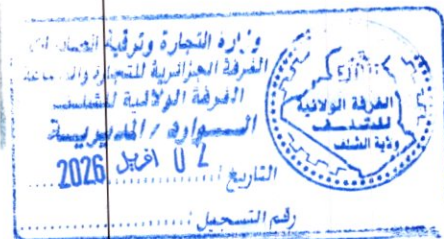 وزارة التجارة وترقية الصادرات
الغرفة الجزائرية للتجارة والصناعة
الغرفة الولائية للشلف
الـــوارد / المديريــة
التاريخ : 02 افريل 2026
رقم التسجيل :
الغرفة الولائية
للشلف
ولاية الشلف